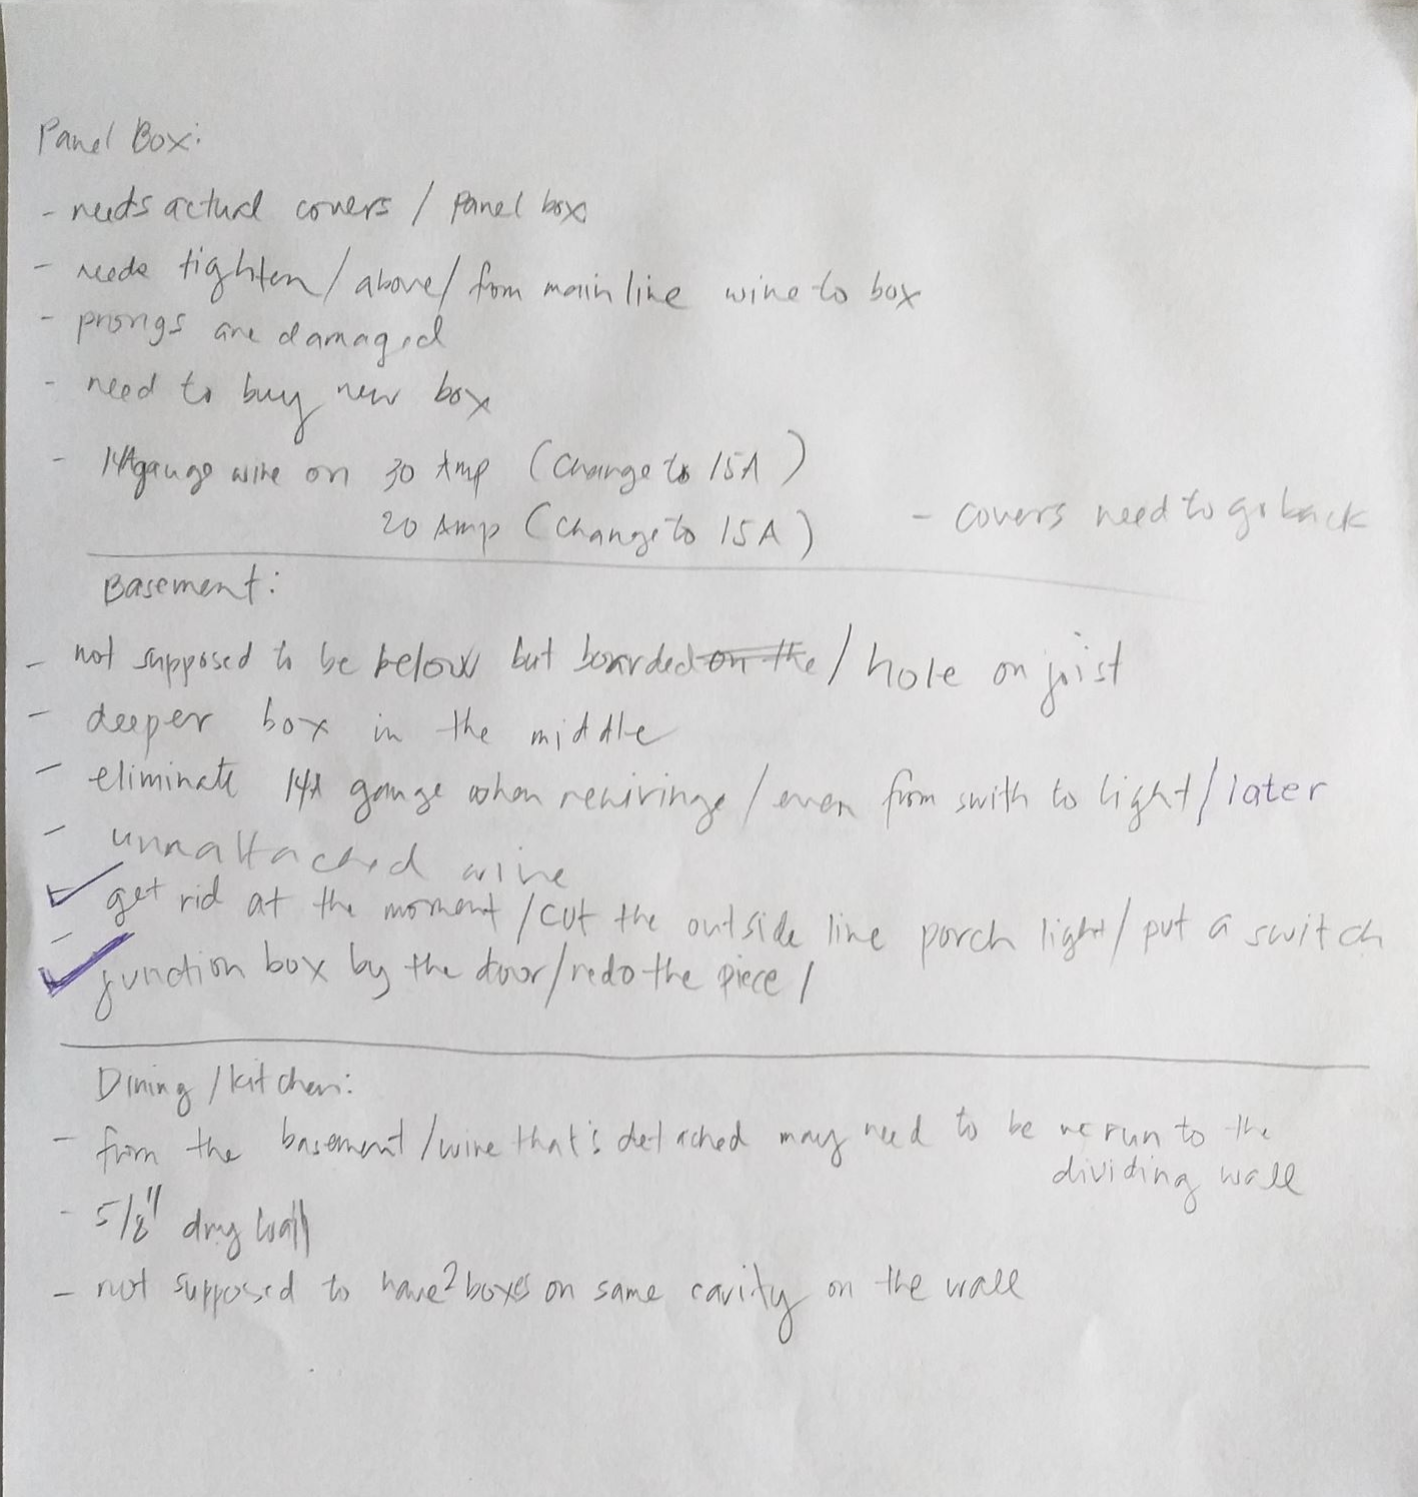 Panel Box:
- needs actual covers / panel box
- needs tighten / above / from main line wire to box
- prongs are damaged
- need to buy new box
- 14 gauge wire on 30 Amp (Change to 15A)
20 Amp (Change to 15A)
- covers need to go back
Basement:
- not supposed to be below but boarded on the / hole on joist
- deeper box in the middle
- eliminate 14 gauge when rewiring / even from swith to light / later
- unnattached wire
- get rid at the moment / cut the outside line porch light / put a switch
- junction box by the door / redo the piece /
Dining / kitchen:
- from the basement / wire that's detached may need to be rerun to the
dividing wall
- 5/8" dry wall
- not supposed to have 2 boxes on same cavity on the wall